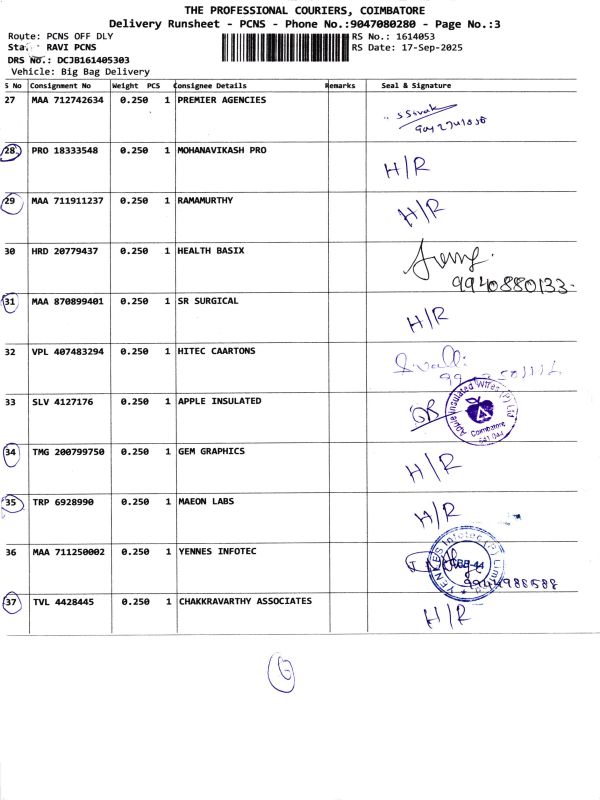 THE PROFESSIONAL COURIERS, COIMBATORE
Delivery Runsheet - PCNS - Phone No.:9047080280 - Page No.:3
Route: PCNS OFF DLY RS No.: 1614053
RAVI PCNS RS Date: 17-Sep-2025
DRS No.: DCJB161405303
Vehicle: Big Bag Delivery
S No Consignment No Weight PCS Consignee Details Remarks Seal & Signature
27 MAA 712742634 0.250 1 PREMIER AGENCIES
28 PRO 18333548 0.250 1 MOHANAVIKASH PRO H/R
29 MAA 711911237 0.250 1 RAMAMURTHY H/R
30 HRD 20779437 0.250 1 HEALTH BASIX
9940880133
31 MAA 870899401 0.250 1 SR SURGICAL H/R
32 VPL 407483294 0.250 1 HITEC CAARTONS
33 SLV 4127176 0.250 1 APPLE INSULATED
Coimbatore
34 TMG 200799750 0.250 1 GEM GRAPHICS H/R
35 TRP 6928990 0.250 1 MAEON LABS H/R
36 MAA 711250002 0.250 1 YENNES INFOTEC
9944988588
37 TVL 4428445 0.250 1 CHAKKRAVARTHY ASSOCIATES H/R